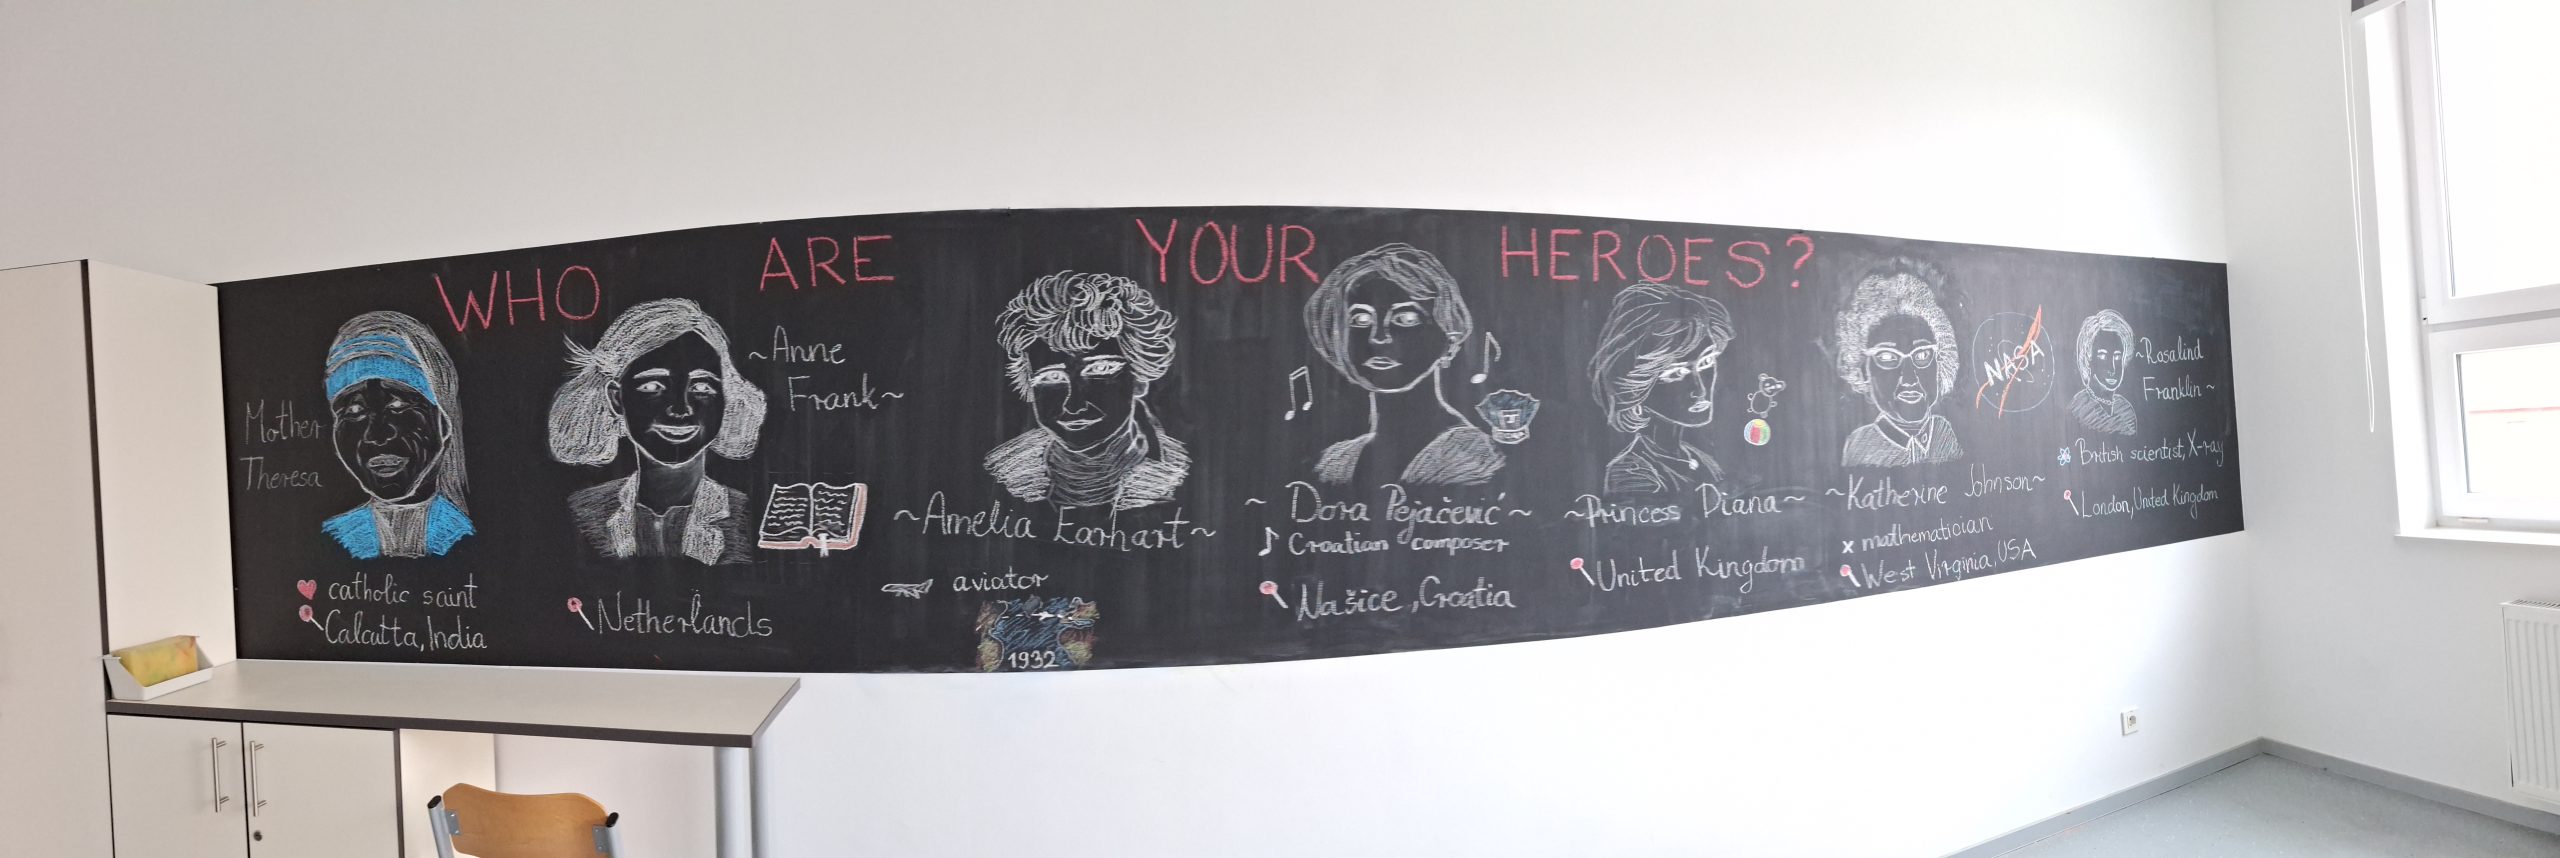 WHO ARE YOUR HEROES?
Mother
Theresa
catholic saint
Calcutta, India
~Anne
Frank~
Netherlands
~Amelia Earhart~
aviator
1932
~Dora Pejačević~
Croatian composer
Našice, Croatia
~Princess Diana~
United Kingdom
~Katherine Johnson~
x mathematician
West Virginia, USA
NASA
~Rosalind
Franklin~
British scientist, X-ray
London, United Kingdom